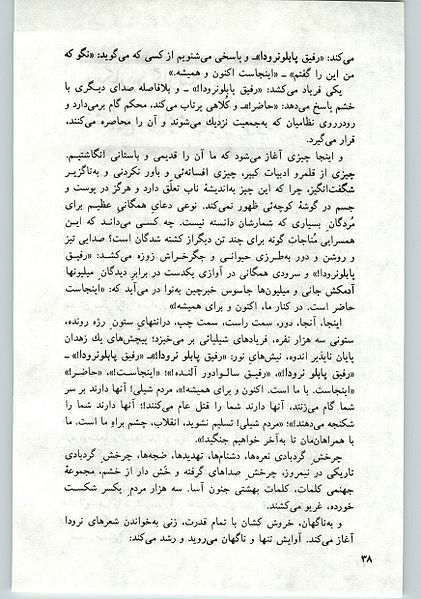 می‌کند: «رفیق پابلونرودا»ـ و پاسخی می‌شنویم از کسی که می‌گوید: «نگو که
من این را گفتم» ـ «اینجاست اکنون و همیشه.»
یکی فریاد می‌کشد: «رفیق پابلونرودا!» ـ و بلافاصله صدای دیگری با
خشم پاسخ می‌دهد: «حاضر!»ـ و کلاهی پرتاب می‌کند، محکم گام برمی‌دارد و
رودرروی نظامیان که به‌جمعیت نزدیك می‌شوند و آن را محاصره می‌کنند،
قرار می‌گیرد.
و اینجا چیزی آغاز می‌شود که ما آن را قدیمی و باستانی انگاشتیم.
چیزی از قلمرو ادبیات کبیر، چیزی افسانه‌ئی و باور نکردنی و به‌ناگزیر
شگفت‌انگیز، چرا که این چیز به‌اندیشهٔ ناب تعلّق دارد و هرگز در پوست و
جسم در گوشهٔ کوچه‌ئی ظهور نمی‌کند. نوعی دعایِ همگانیِ عظیم برای
مُردگانِ بسیاری که شمارشان دانسته نیست. چه کسی می‌داند که این
همسرایی مُناجات گونه برای چند تن دیگراز کشته شدگان است؟ صدایی تیز
و روشن و دور به‌طرزی حیوانی و جگرخراش زوزه می‌کشد: «رفیق
پابلونرودا!» و سرودی همگانی در آوازی یکدست در برابرِ دیدگانِ میلیونها
آدمکش جانی و میلیون‌ها جاسوس خبرچین به‌نوا در می‌آید که: «اینجاست
حاضر است. در کنار ما، اکنون و برای همیشه!»
اینجا، آنجا، دور، سمت راست، سمت چپ، درانتهایِ ستونِ رژه رونده،
ستونی سه هزار نفره، فریادهای شیلیائی بر می‌خیزد؛ پیچش‌های یك زهدان
پایان ناپذیر اندوه، نیش‌های نور: «رفیق پابلو نرودا!»ـ «رفیق پابلونرودا!» ـ
«رفیق پابلو نرودا!»، «رفیق سالـوادور آلنـده!»؛ «اینجاسـت!»، «حاضـر!»
«اینجاست. با ما است. اکنون و برای همیشه!»، «مردم شیلی! آنها دارند بر سر
شما گام می‌زنند، آنها دارند شما را قتل عام می‌کنند!؛ آنها دارند شما را
شکنجه می‌دهند!»؛ «مردم شیلی! تسلیم نشوید، انقلاب، چشم براهِ ما است. ما
با همراهان‌مان تا به‌آخر خواهیم جنگید!».
چرخشِ گردبادی نعره‌ها، دشنام‌ها، تهدیدها، ضجه‌ها، چرخشِ گردبادی
تاریکی در نیمروز، چرخشِ صداهای گرفته و خَش دار از خشم، مجموعهٔ
جهنمی کلمات، کلمات بهشتیِ جنون آسا. سه هزار مردمِ یکسر شکست
خورده، غریو می‌کشند.
و به‌ناگهان، خروش کشان با تمام قدرت، زنی به‌خواندن شعرهای نرودا
آغاز می‌کند. آوایش تنها و ناگهان می‌روید و رشد می‌کند:
۳۸